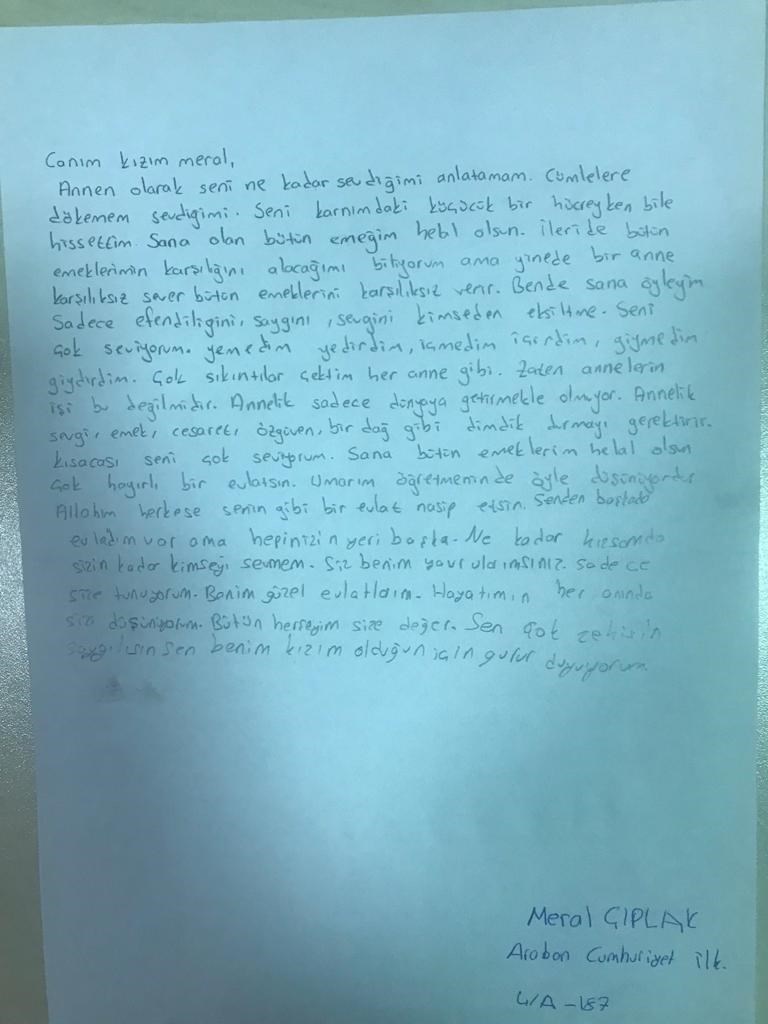 Canım kızım meral,
Annen olarak seni ne kadar sevdiğimi anlatamam. Cümlelere
dökemem sevdigimi. Seni karnımdaki küçücük bir hücreyken bile
hissettim. Sana olan bütün emeğim helal olsun. ileride bütün
emeklerimin karşılığını alacağımı biliyorum ama yinede bir anne
karşılıksız sever bütün emeklerini karşılıksız verir. Bende sana öyleyim
Sadece efendiligini, saygını, sevgini kimseden eksiltme. Seni
çok seviyorum. yemedim yedirdim, içmedim içirdim, giymedim
giydirdim. Çok sıkıntılar çektim her anne gibi. Zaten annelerin
işi bu değilmidir. Annelik sadece dünyaya getirmekle olmuyor. Annelik
sevgi, emek, cesaret, özgüven, bir dağ gibi dimdik durmayı gerektirir.
kısacası seni çok seviyorum. Sana bütün emeklerim helal olsun
çok hayırlı bir evlatsın. Umarım öğretmeninde öyle düşünüyordur
Allahım herkese senin gibi bir evlat nasip etsin. Senden başkada
evladım var ama hepinizin yeri başka. Ne kadar
sizin kadar kimseyi sevmem. Siz benim yavrularımsınız. sadece
size Benim güzel evlatlarım. Hayatımın her anında
sizi düşünüyorum. Bütün herşeyim size değer. Sen çok zekisin
saygılısın sen benim kızım olduğun için gurur duyuyorum
Meral ÇIPLAK
Araban Cumhuriyet ilk.
4/A -187